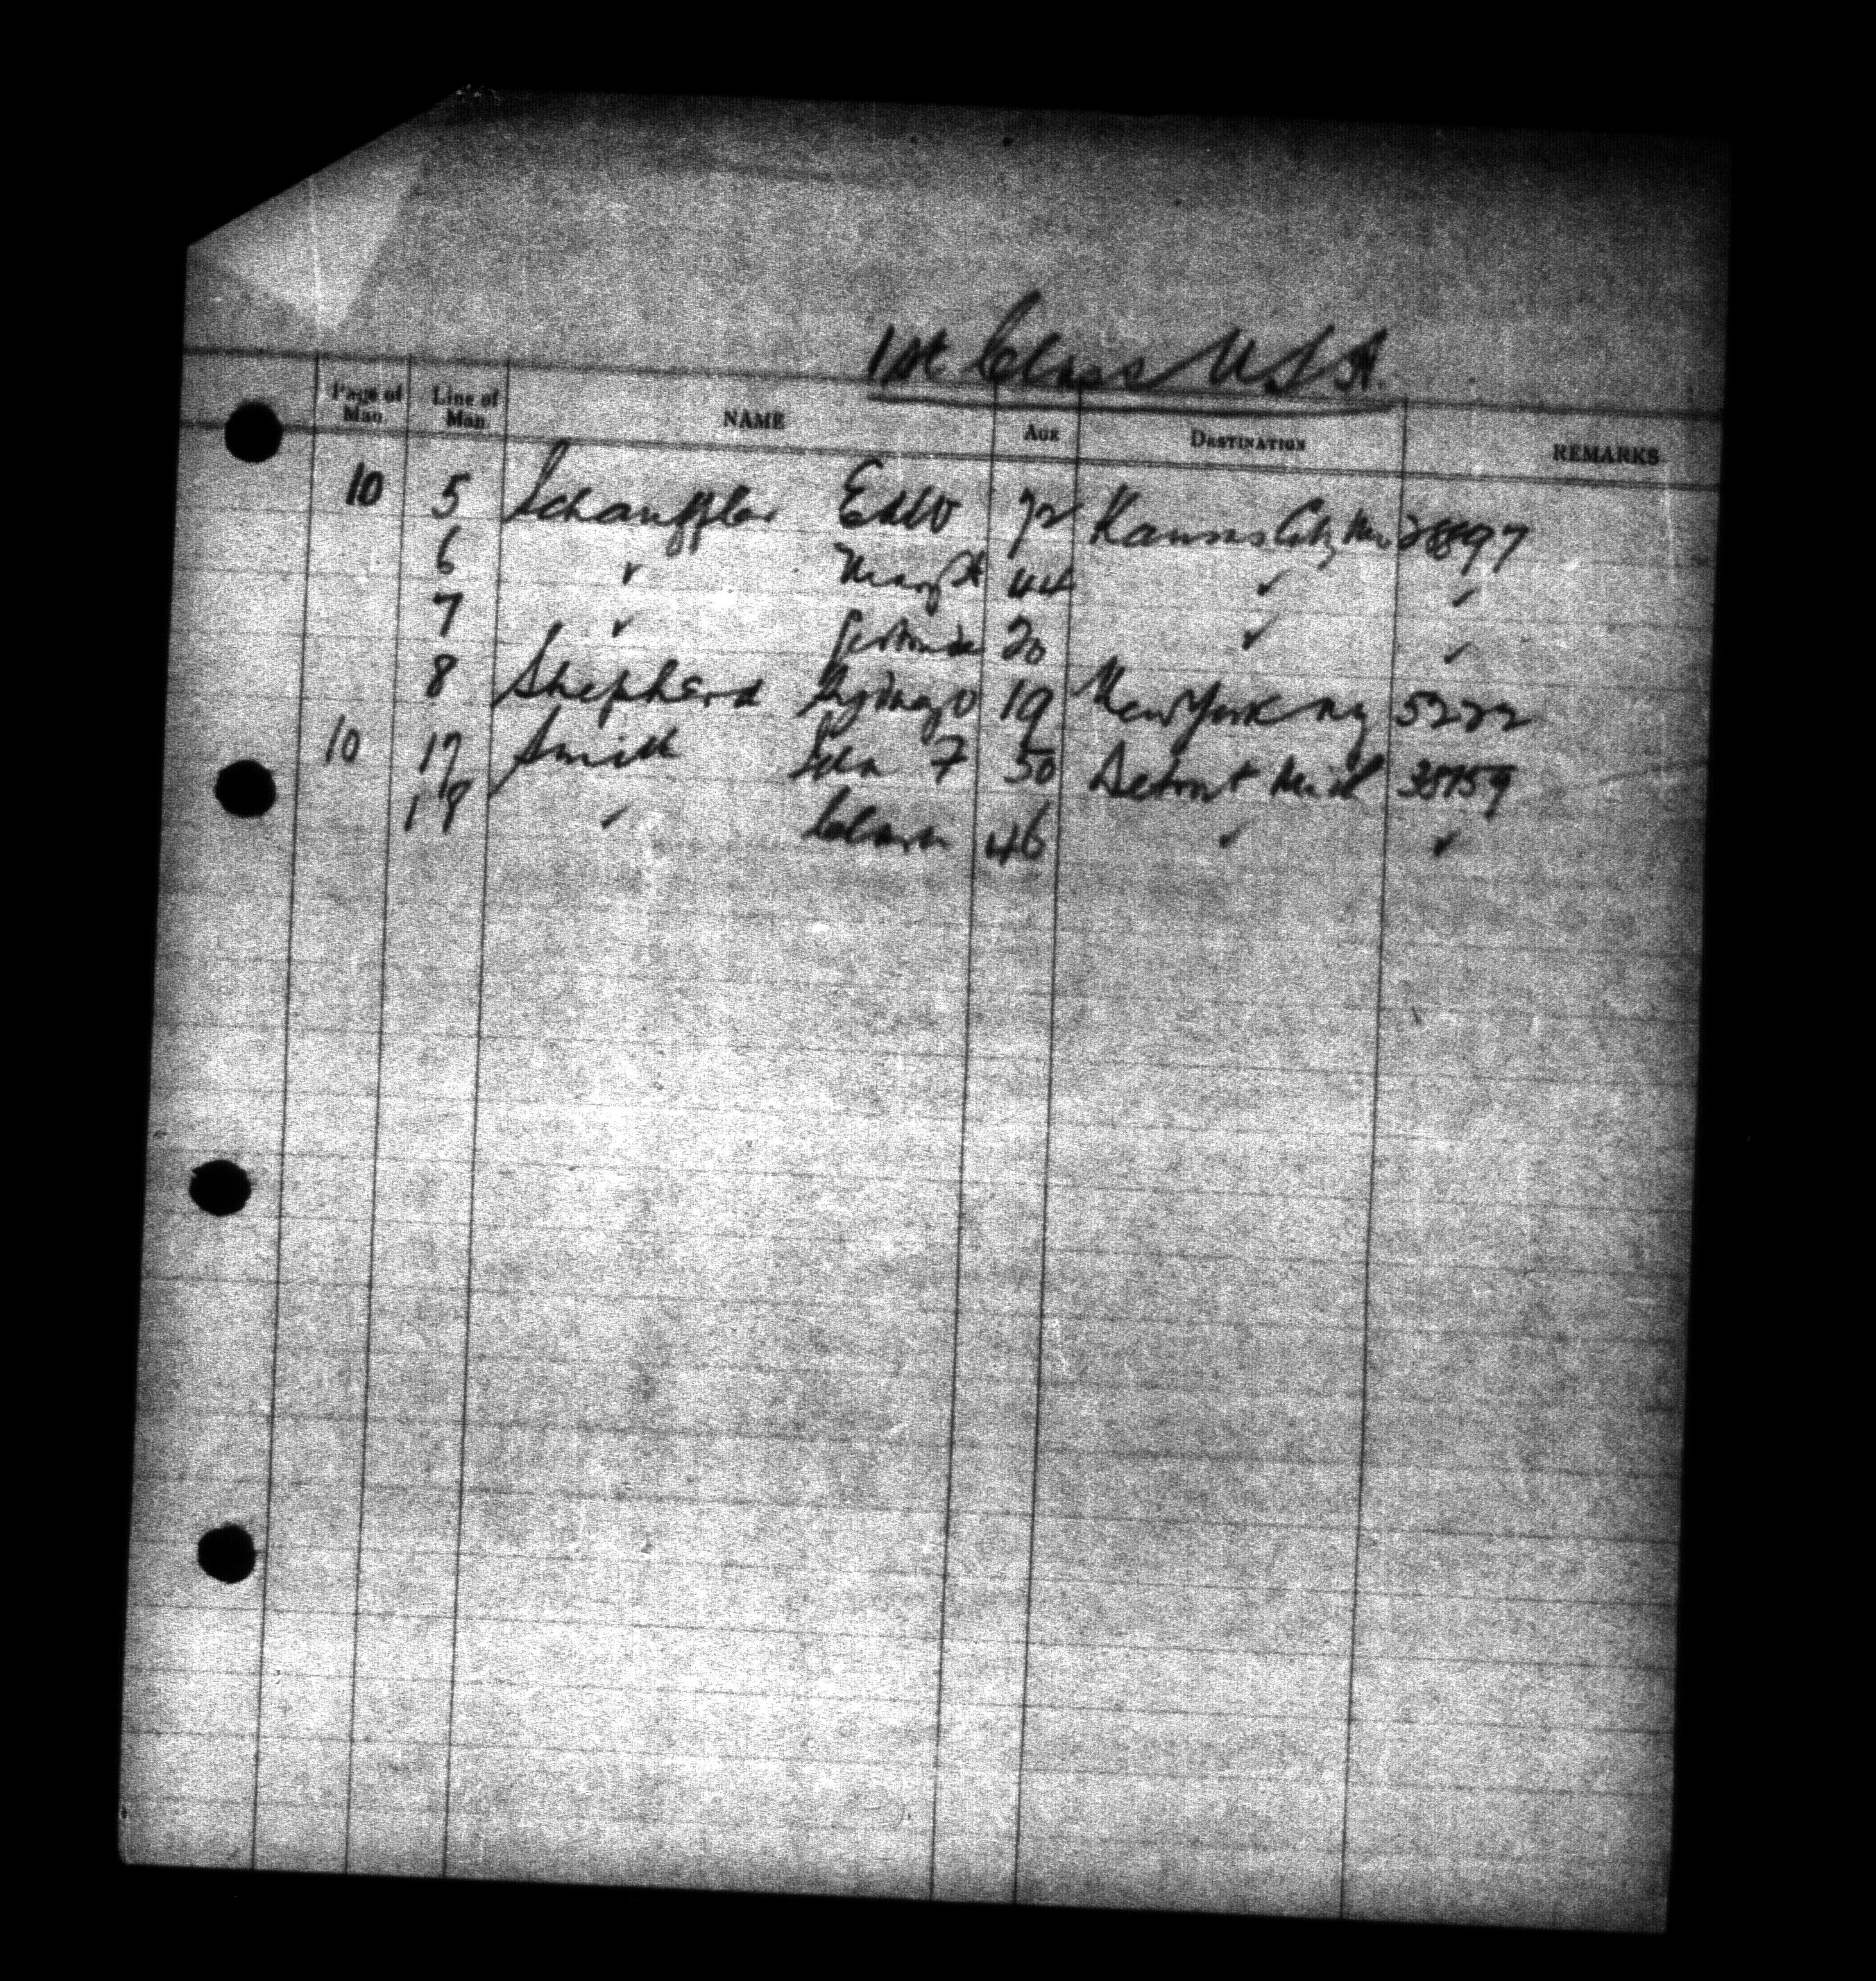 1st Class U.S.A.
Page of Man. Line of Man. NAME AGE DESTINATION REMARKS
10 5 Schauffler Edw 72 Kansas City Mo 28897
6 " Mary H 44 " "
7 " Gertrude 20 " "
8 Shepherd 19 New York NY 5222
10 17 Smith 7 50 Detroit Mich 38159
18 " Clara 46 " "